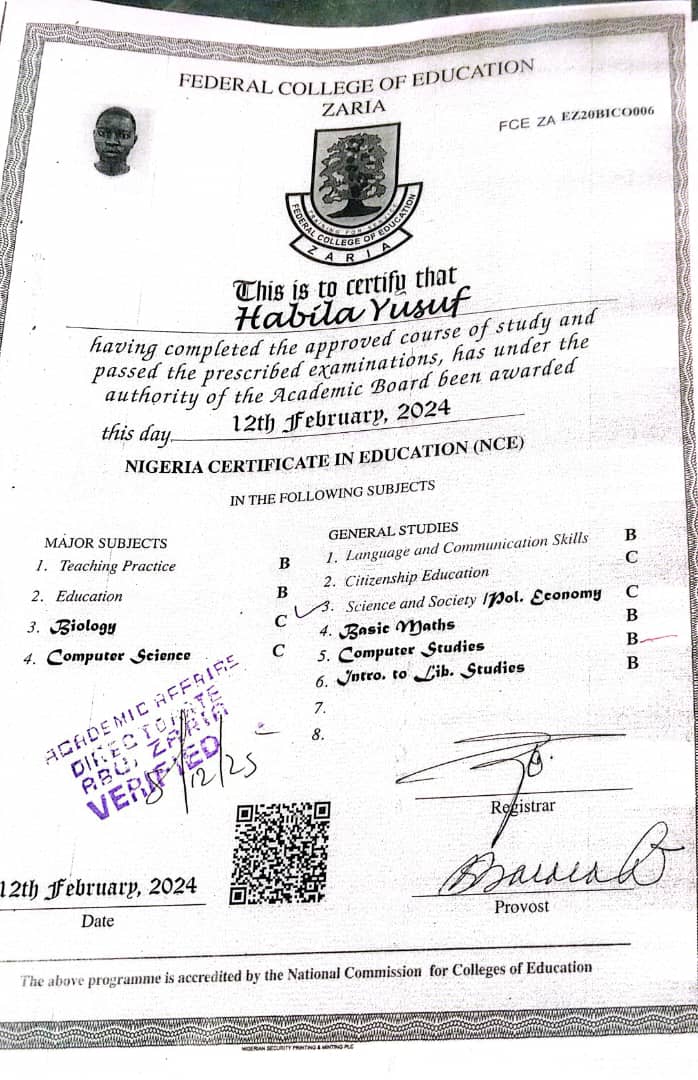 FEDERAL COLLEGE OF EDUCATION
ZARIA
FCE ZA EZ20BICO006
TRAINING FOR SERVICE
FEDERAL COLLEGE OF EDUCATION
ZARIA
This is to certify that
Habila Yusuf
having completed the approved course of study and
passed the prescribed examinations, has under the
authority of the Academic Board been awarded
this day 12th February, 2024
NIGERIA CERTIFICATE IN EDUCATION (NCE)
IN THE FOLLOWING SUBJECTS
MAJOR SUBJECTS
1. Teaching Practice B
2. Education B
3. Biology C
4. Computer Science C
GENERAL STUDIES
1. Language and Communication Skills B
2. Citizenship Education C
3. Science and Society /Pol. Economy C
4. Basic Maths B
5. Computer Studies B
6. Intro. to Lib. Studies B
7.
8.
ACADEMIC AFFAIRS
DIRECTORATE
ABU, ZARIA
VERIFIED
8/12/25
Registrar
12th February, 2024
Date
Provost
The above programme is accredited by the National Commission for Colleges of Education
NIGERIAN SECURITY PRINTING & MINTING PLC